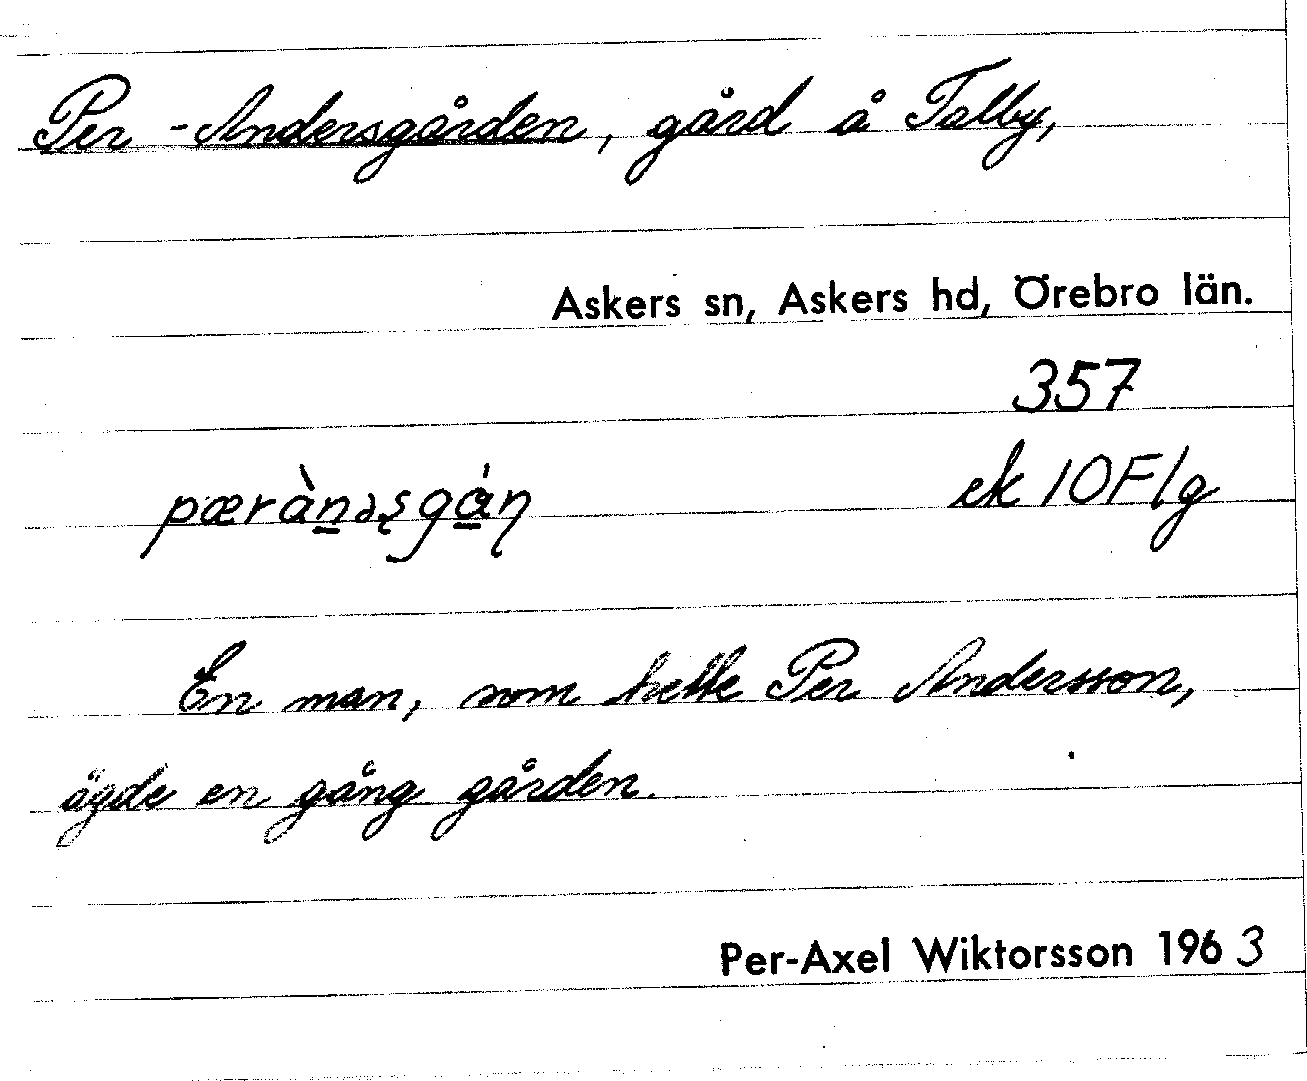 Per-Andersgården, gård å Talby,
Askers sn, Askers hd, Örebro län.
357
pæràn̲əʂgǻ̲ɳ
ek 10F/g
En man, som hette Per Andersson,
ägde en gång gården.
Per-Axel Wiktorsson 1963